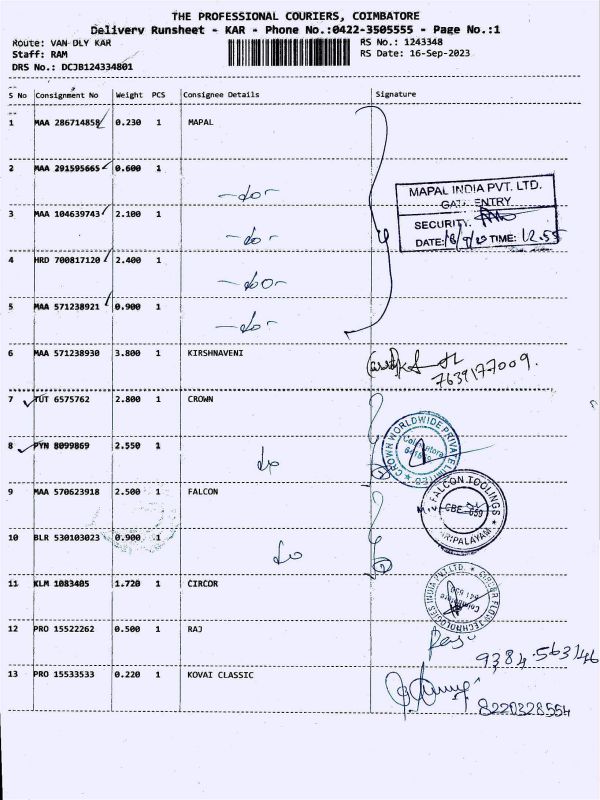 THE PROFESSIONAL COURIERS, COIMBATORE
Delivery Runsheet - KAR - Phone No.:0422-3505555 - Page No.:1
Route: VAN DLY KAR RS No.: 1243348
Staff: RAM RS Date: 16-Sep-2023
DRS No.: DCJB124334801
S No Consignment No Weight PCS Consignee Details Signature
1 MAA 286714858 0.230 1 MAPAL
2 MAA 291595665 0.600 1 -do-
MAPAL INDIA PVT. LTD.
GATE ENTRY
SECURITY:
DATE: TIME: 12.55
3 MAA 104639743 2.100 1 -do-
4 HRD 700817120 2.400 1 -do-
5 MAA 571238921 0.900 1 -do-
6 MAA 571238930 3.800 1 KIRSHNAVENI
7639177009.
7 TUT 6575762 2.800 1 CROWN
CROWN WORLDWIDE PRIVATE LIMITED
Coimbatore
8 PYN 8099869 2.550 1 do
9 MAA 570623918 2.500 1 FALCON
FALCON TOOLINGS
CBE
10 BLR 530103023 0.900 1 do
11 KLM 1083405 1.720 1 CIRCOR
FLOW TECHNOLOGIES INDIA PVT LTD.
Coimbatore
12 PRO 15522262 0.500 1 RAJ
9384-563146
13 PRO 15533533 0.220 1 KOVAI CLASSIC
8220328554